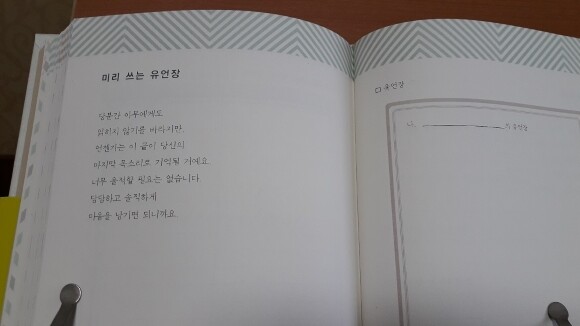 미리 쓰는 유언장
당분간 아무에게도
읽히지 않기를 바라지만,
언젠가는 이 글이 당신의
마지막 목소리로 기억될 거예요.
너무 울적할 필요는 없습니다.
담담하고 솔직하게
마음을 남기면 되니까요.
유언장
나, 의 유언장